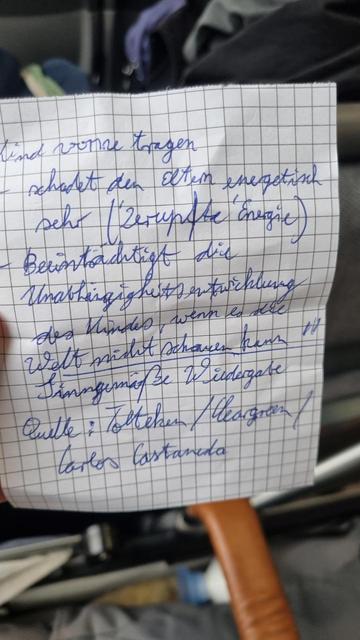 Kind vorne tragen
- schadet den Eltern energetisch
sehr ("Zerupfte" Energie)
- Beeinträchtigt die
Unabhängigkeitsentwicklung
des Kindes, wenn es die
Welt nicht schauen kann !!!
Sinngemäße Wiedergabe
Quelle: Tolteken / Cleargreen /
Carlos Castaneda